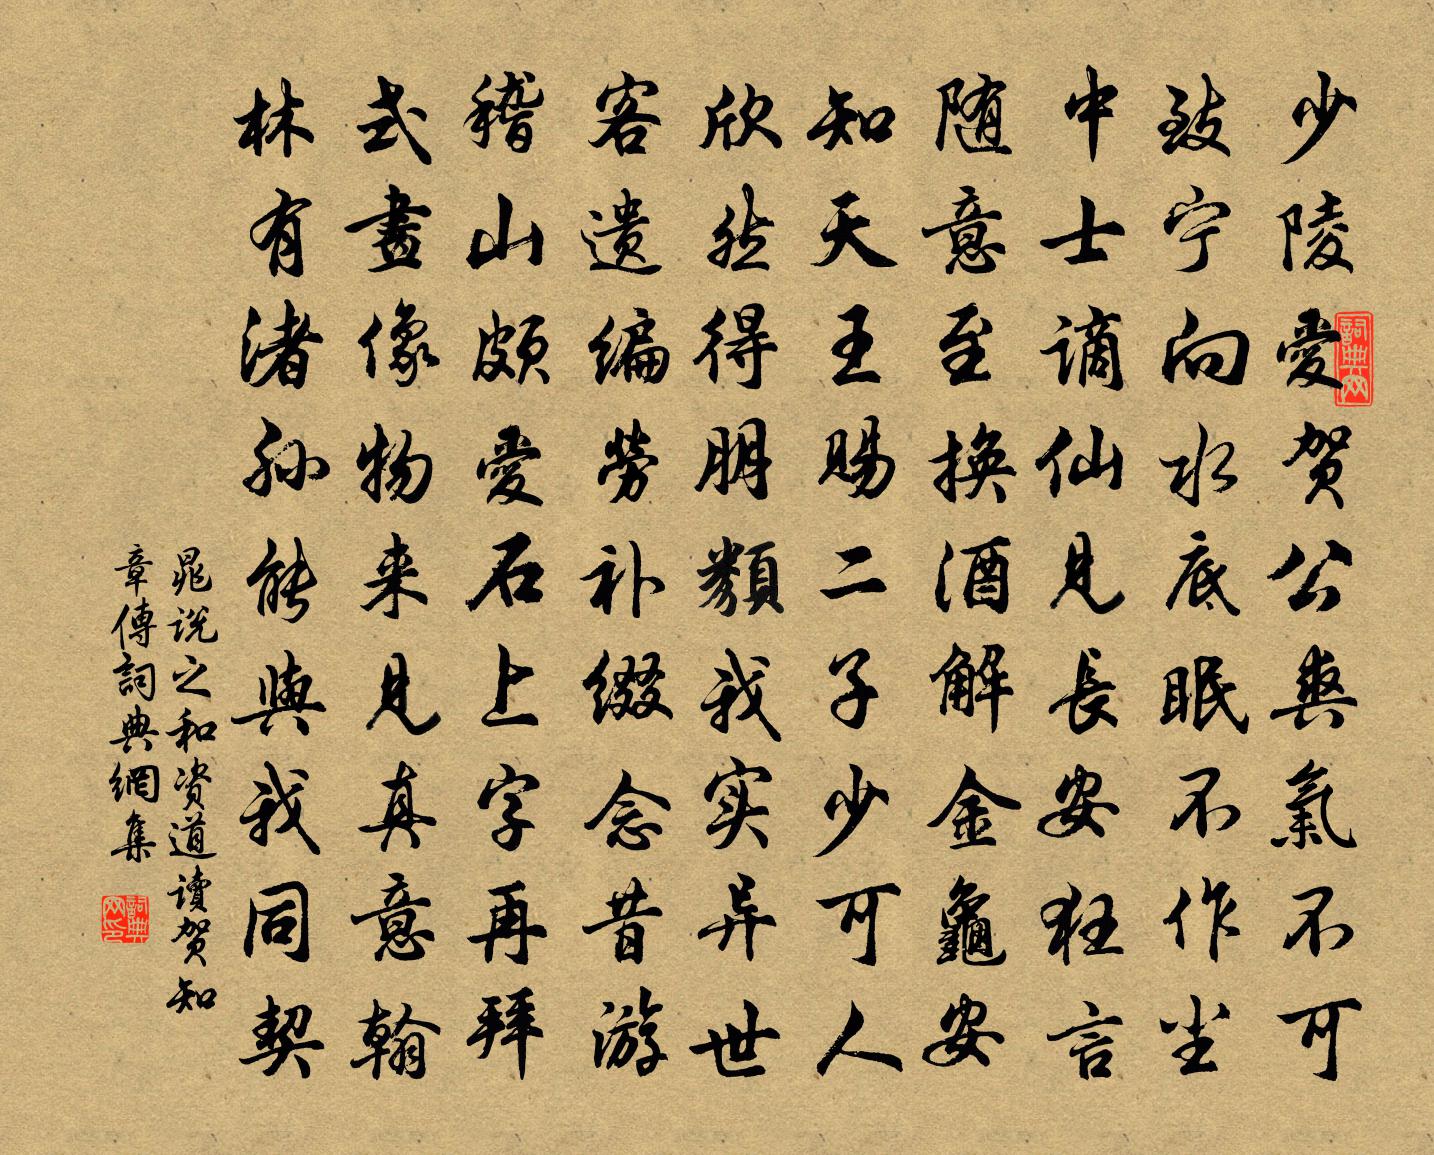 少陵愛贺公爽氣不可
致宁向水底眠不作尘
中士谪仙见長安狂言
随意至换酒解金龜安
知天王賜二子少可人
欣然得朋類我实异世
客遗编劳补缀念昔游
稽山颇愛石上字再拜
式畫像物来见真意翰
林有渚孙能與我同契
晁说之和资道讀贺知
章傳詞典網集
詞典网
詞典网印